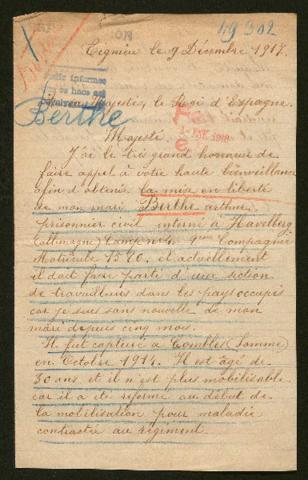 49302
Cegnier le 9 Décembre 1917.
Sa Majesté, le Roi d'Espagne.
Berthe
1-ENE 1918
Majesté
J'ai le très grand honneur de
faire appel à votre haute bienveillance
afin d'obtenir la mise en liberté
de mon mari Berthe
prisonnier civil interné à Havelberg
(Allemagne) Camp no 4. Compagnie
Matricule et actuellement
il doit faire parti d'une section
de travailleurs dans les pays occupés
car je suis sans nouvelle de mon
mari depuis cinq mois.
Il fut capturé à Combles (Somme)
en Octobre 1914. Il est âgé de
30 ans et il n'est plus mobilisable
car il a été réformé au début de
la mobilisation pour maladie
contractée au régiment.